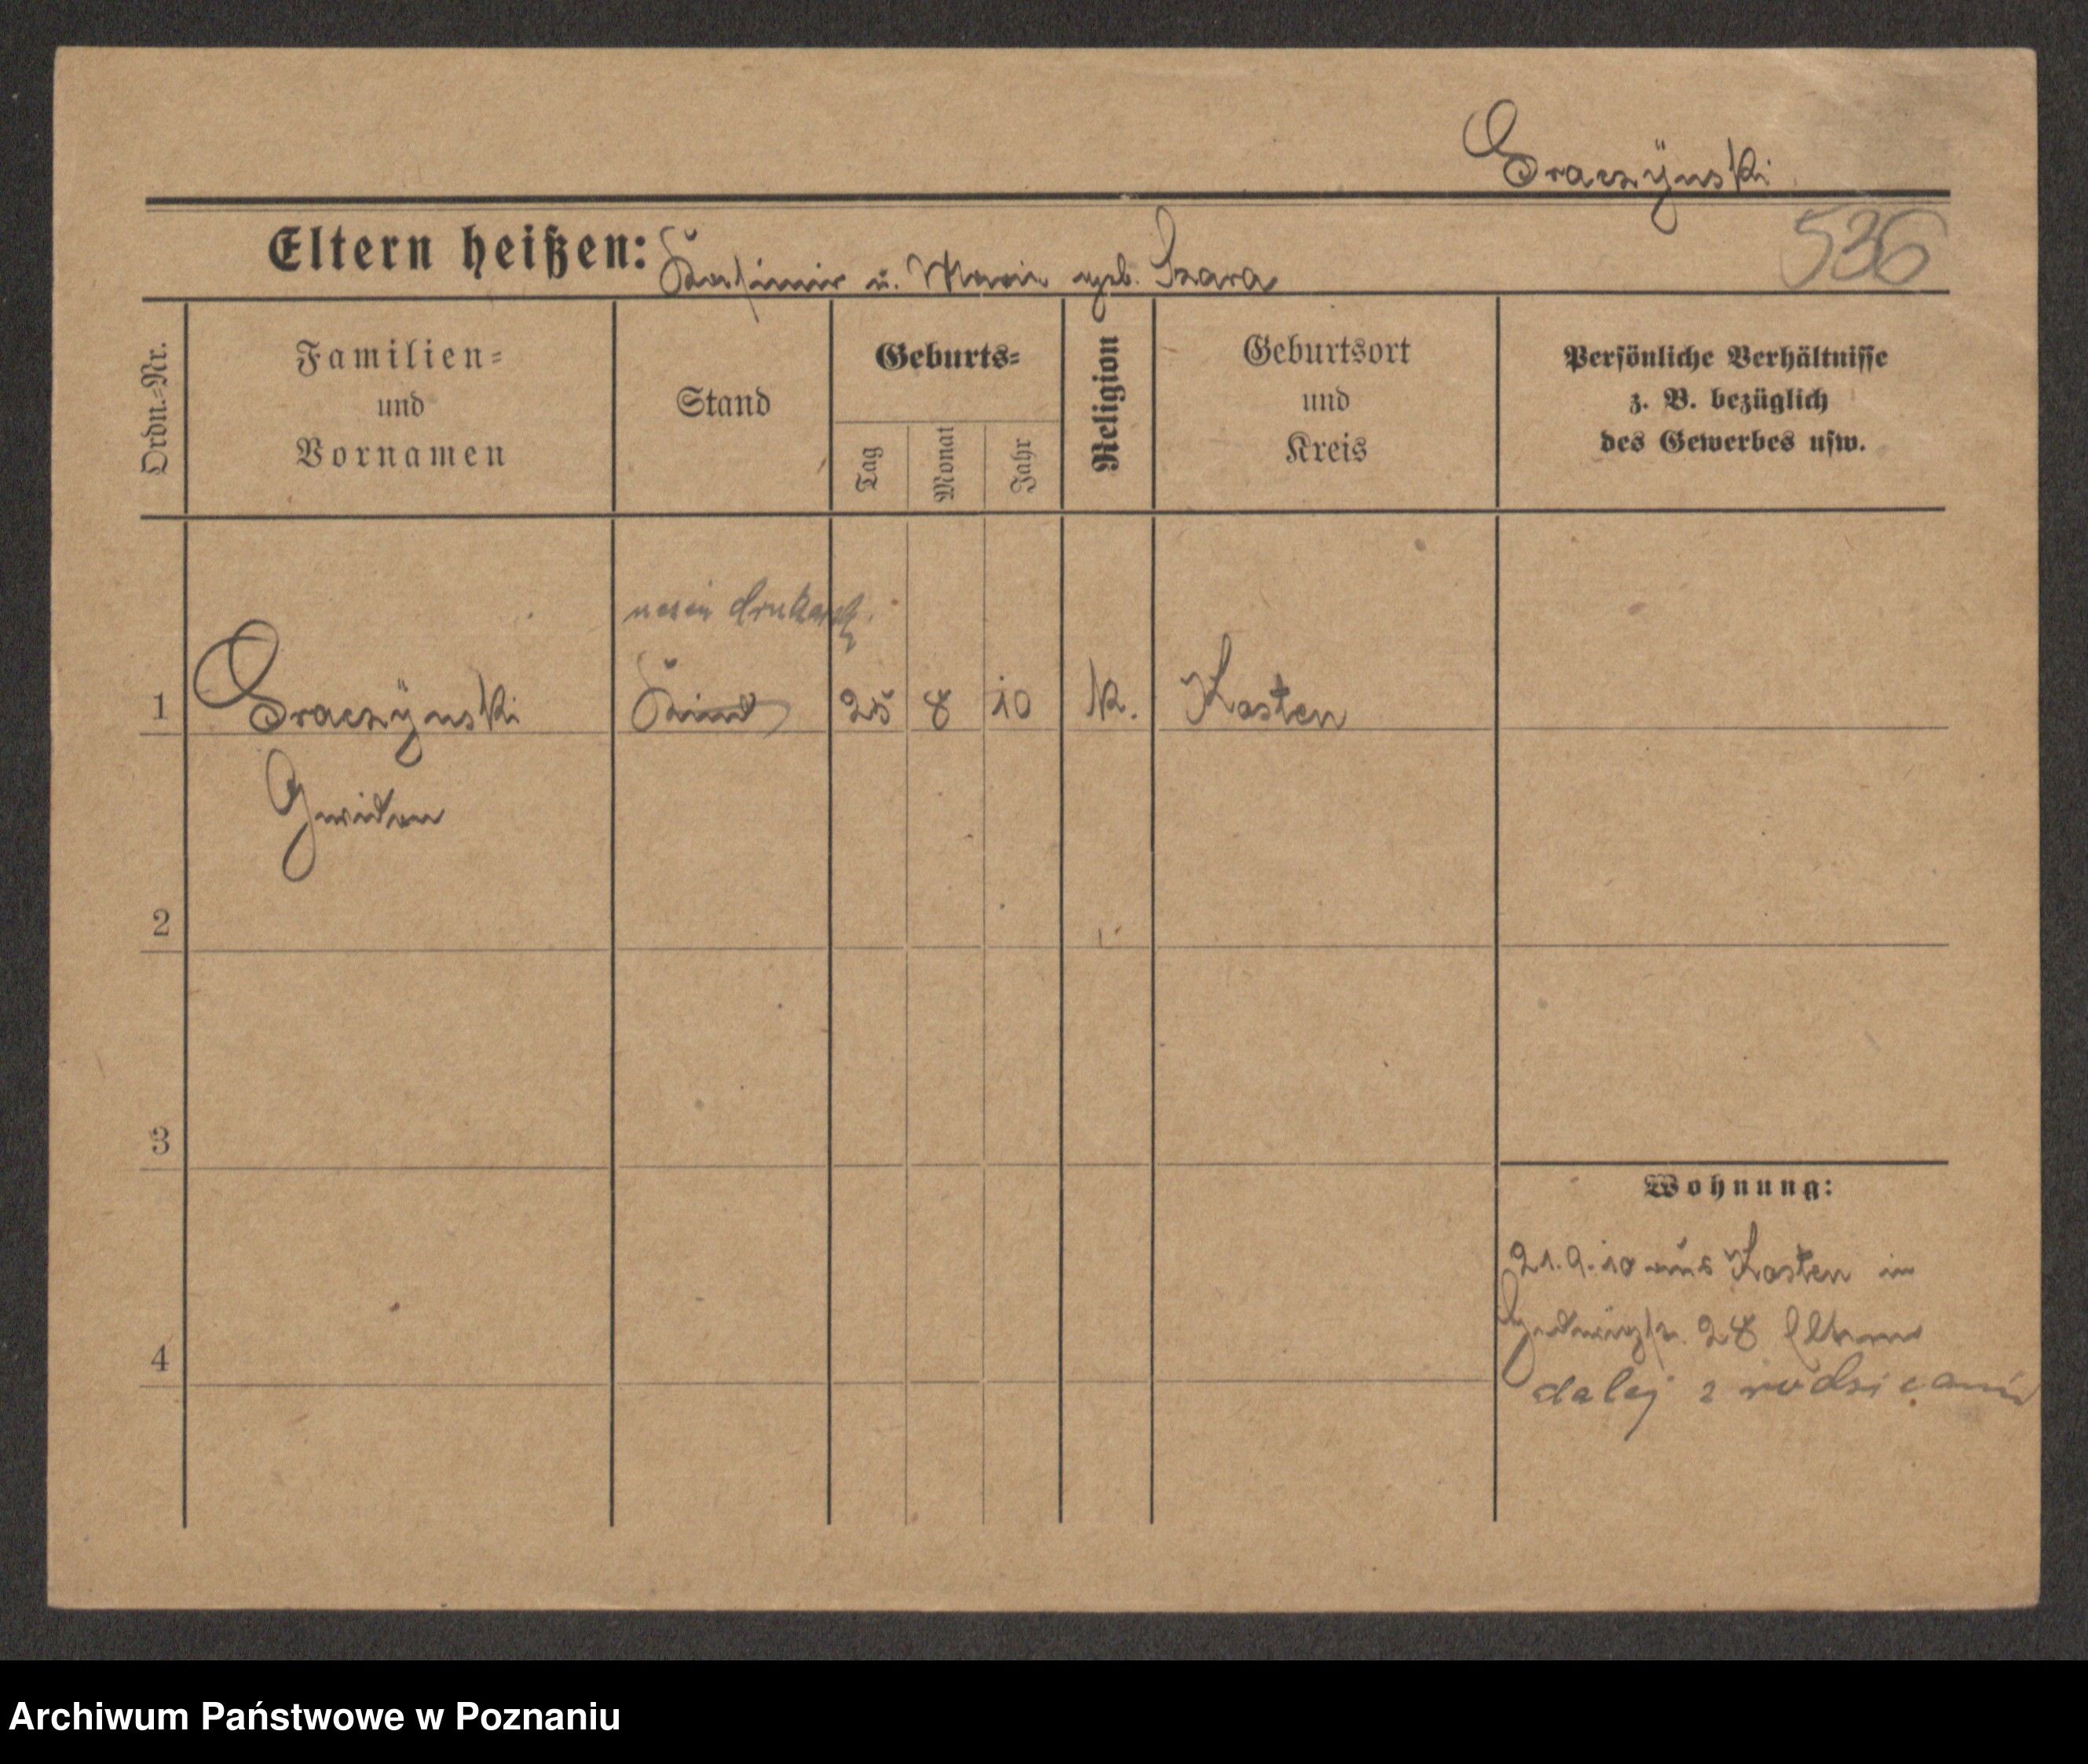 Graczÿnski
Eltern heißen: Kasimir u. Marie geb. Szara
536
Ordn.-Nr.
Familien-
und
Vornamen
Stand
Geburts-
Tag
Monat
Jahr
Religion
Geburtsort
und
Kreis
Persönliche Verhältnisse
z. B. bezüglich
des Gewerbes usw.
uczeń drukarsk.
1 Graczÿnski Kind 25 8 10 k. Kosten
Gwidon
2
3
Wohnung:
21.9.10 aus Kosten in
28 Eltern
4
dalej z rodzicami
Archiwum Państwowe w Poznaniu